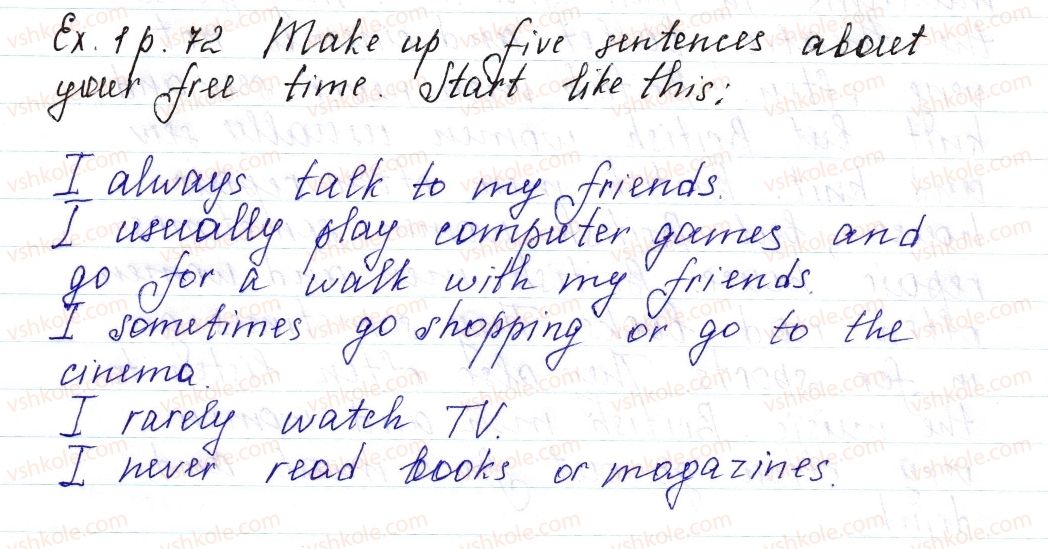 Ex. 1 p. 72 Make up five sentences about
your free time. Start like this:
I always talk to my friends.
I usually play computer games and
go for a walk with my friends.
I sometimes go shopping or go to the
cinema.
I rarely watch TV.
I never read books or magazines.